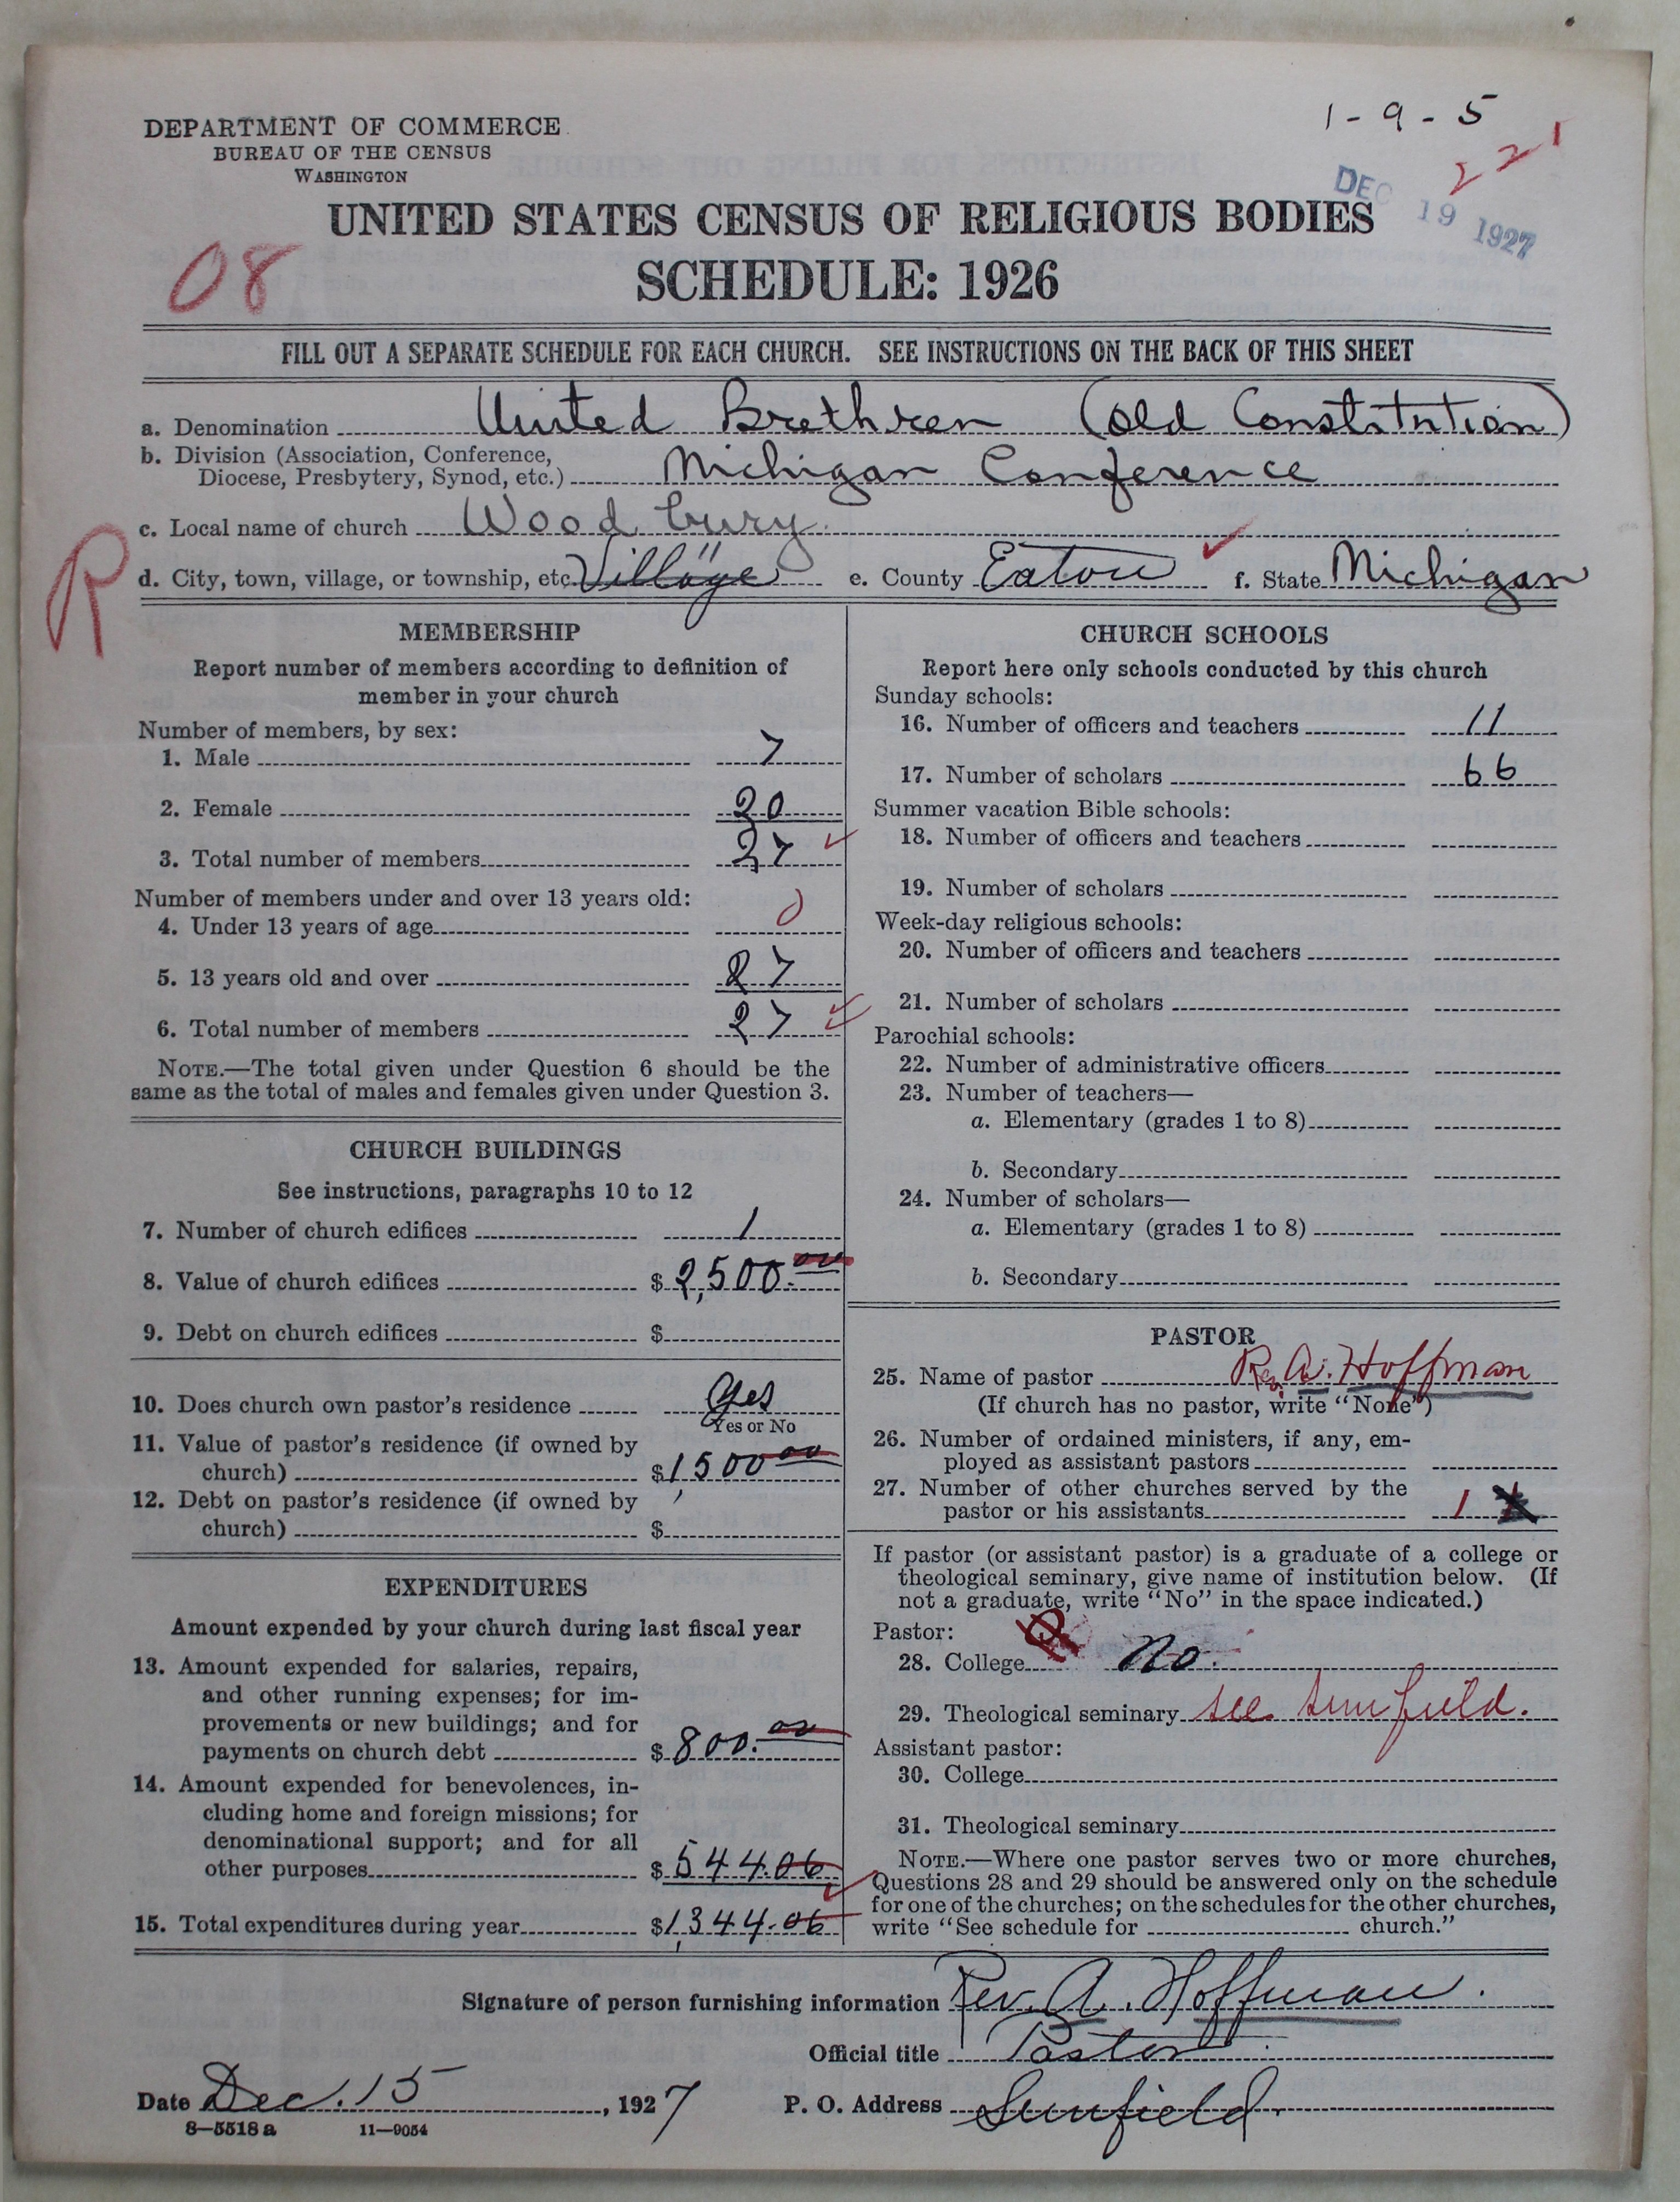 1-9-5
221
DEPARTMENT OF COMMERCE
BUREAU OF THE CENSUS
WASHINGTON
DEC 19 1927
UNITED STATES CENSUS OF RELIGIOUS BODIES
08
SCHEDULE: 1926
FILL OUT A SEPARATE SCHEDULE FOR EACH CHURCH. SEE INSTRUCTIONS ON THE BACK OF THIS SHEET
a. Denomination United Brethren (Old Constitution)
b. Division (Association, Conference,
Diocese, Presbytery, Synod, etc.) Michigan Conference
c. Local name of church Woodbury
R
d. City, town, village, or township, etc. " Village e. County Eaton f. State Michigan
MEMBERSHIP
Report number of members according to definition of
member in your church
Number of members, by sex:
1. Male 7
2. Female 20
3. Total number of members 27
Number of members under and over 13 years old:
4. Under 13 years of age 0
5. 13 years old and over 27
6. Total number of members 27
NOTE.—The total given under Question 6 should be the
same as the total of males and females given under Question 3.
CHURCH BUILDINGS
See instructions, paragraphs 10 to 12
7. Number of church edifices 1
8. Value of church edifices $2,500.00
9. Debt on church edifices $
10. Does church own pastor's residence Yes
Yes or No
11. Value of pastor's residence (if owned by
church) $1,500 00
12. Debt on pastor's residence (if owned by
church) $
EXPENDITURES
Amount expended by your church during last fiscal year
13. Amount expended for salaries, repairs,
and other running expenses; for im-
provements or new buildings; and for
payments on church debt $800.00
14. Amount expended for benevolences, in-
cluding home and foreign missions; for
denominational support; and for all
other purposes $544.06
15. Total expenditures during year $1,344.06
CHURCH SCHOOLS
Report here only schools conducted by this church
Sunday schools:
16. Number of officers and teachers 11
17. Number of scholars 66
Summer vacation Bible schools:
18. Number of officers and teachers
19. Number of scholars
Week-day religious schools:
20. Number of officers and teachers
21. Number of scholars
Parochial schools:
22. Number of administrative officers
23. Number of teachers—
a. Elementary (grades 1 to 8)
b. Secondary
24. Number of scholars—
a. Elementary (grades 1 to 8)
b. Secondary
PASTOR
25. Name of pastor Rev. A. Hoffman
(If church has no pastor, write "None")
26. Number of ordained ministers, if any, em-
ployed as assistant pastors
27. Number of other churches served by the
pastor or his assistants 1
If pastor (or assistant pastor) is a graduate of a college or
theological seminary, give name of institution below. (If
not a graduate, write "No" in the space indicated.)
Pastor:
28. College No.
29. Theological seminary See Sunfield.
Assistant pastor:
30. College
31. Theological seminary
NOTE.—Where one pastor serves two or more churches,
Questions 28 and 29 should be answered only on the schedule
for one of the churches; on the schedules for the other churches,
write "See schedule for church."
Signature of person furnishing information Rev. A. Hoffman.
Official title Pastor
Date Dec. 15, 1927 P. O. Address Sunfield.
8—5518 a 11—9054